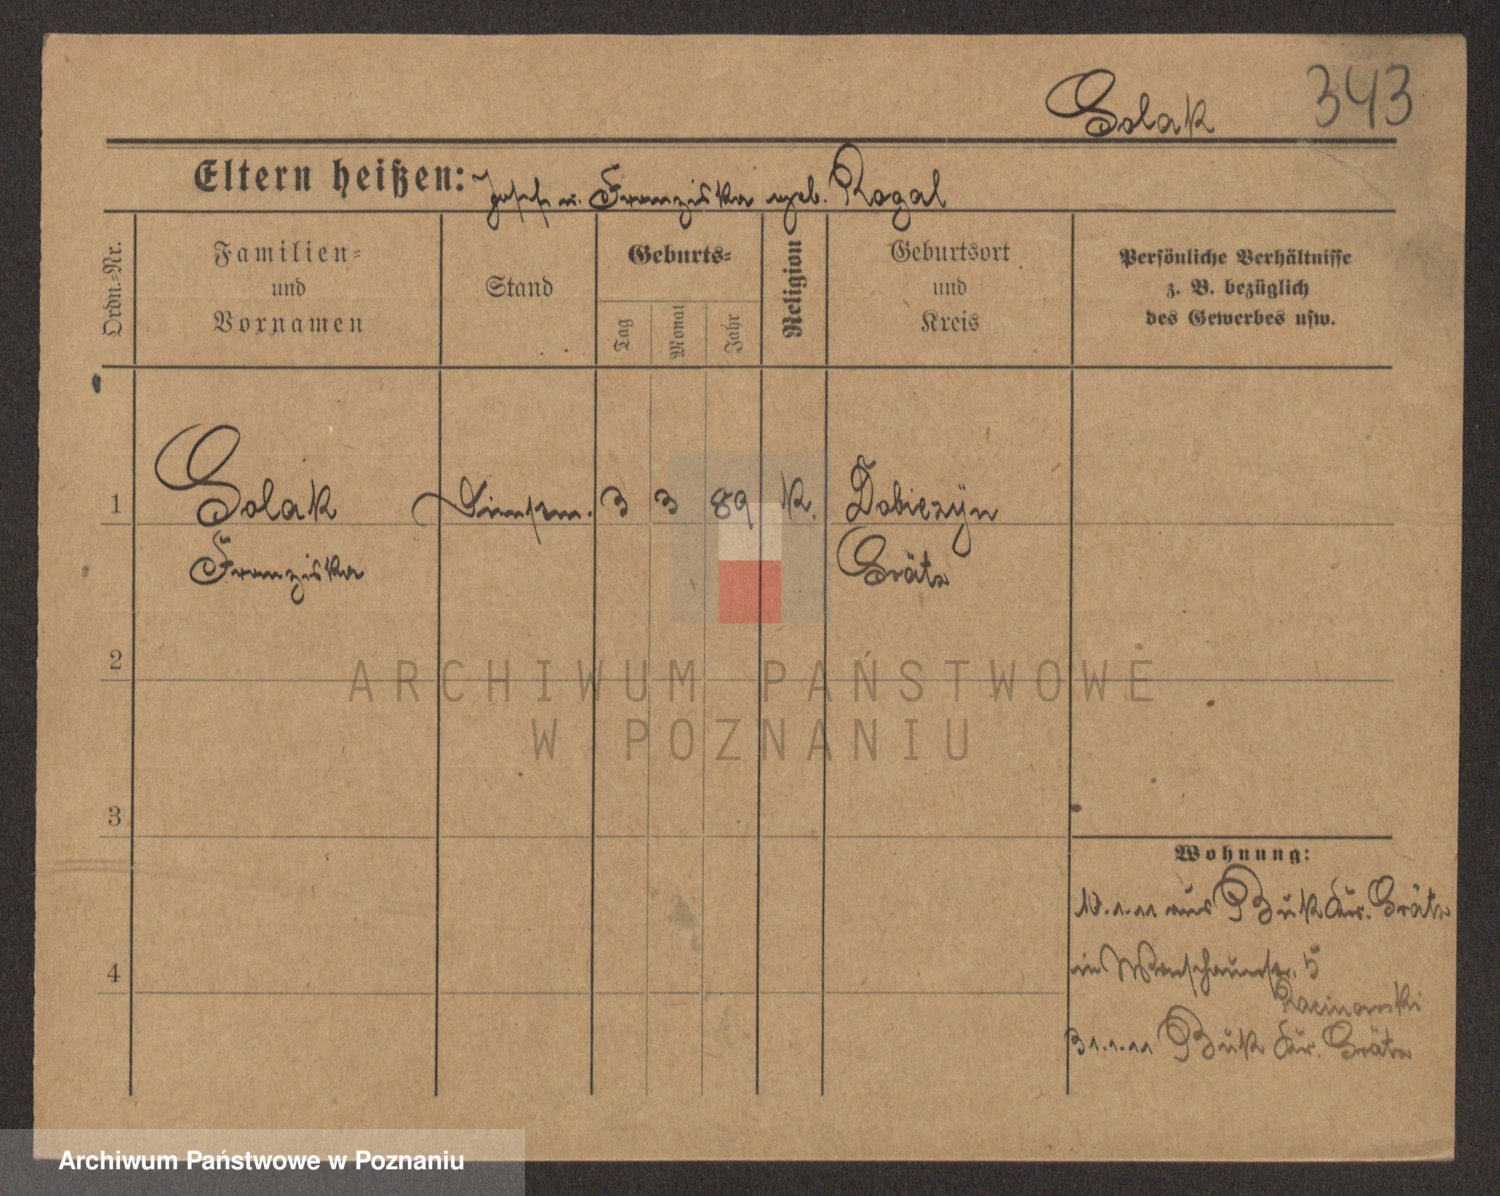 Solak 343
Eltern heißen: Josef u. Franziska geb. Rogal
Ordn.-Nr.
Familien- und Vornamen
Stand
Geburts-
Tag
Monat
Jahr
Religion
Geburtsort und Kreis
Persönliche Verhältnisse
z. B. bezüglich
des Gewerbes usw.
1 Solak 3 3 89 K. Dobiezyn
Franziska Grätz
2
3
4
Wohnung:
10.1.11 aus Buk Kr. Grätz
in 5
Racinowski
31.1.11 Buk Kr. Grätz
ARCHIWUM PAŃSTWOWE
W POZNANIU
Archiwum Państwowe w Poznaniu